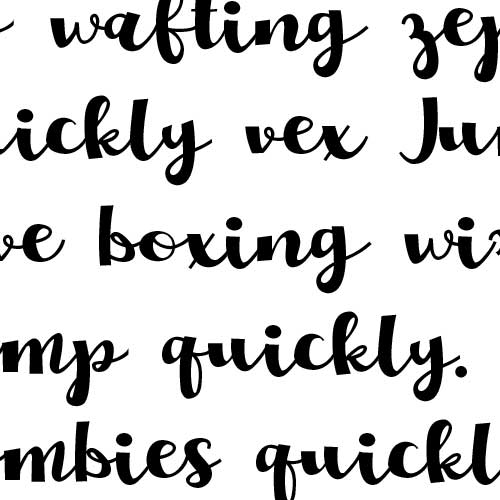 wafting zep
ickly vex Jun
ve boxing wiz
mp quickly.
mbies quickl